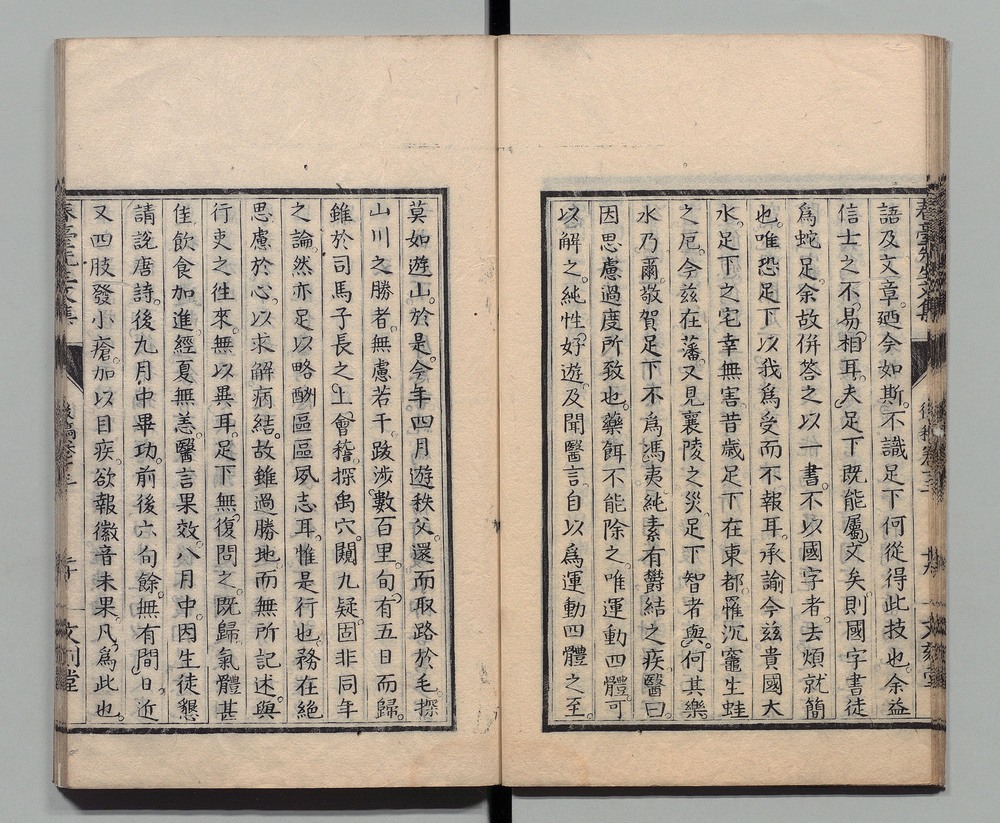 語及文章。廼今如斯。不識足下何從得此技也。余益
信士之不易相耳。夫足下既能屬文矣。則國字書徒
爲蛇足。余故併答之以一書。不以國字者。去煩就簡
也。唯恐足下以我爲受而不報耳。承諭今兹貴國大
水。足下之宅幸無害。昔歲足下在東都。罹沉竈生蛙
之厄。今兹在藩。又見襄陵之災。足下智者與。何其樂
水乃爾。敬賀足下不爲馮夷。純素有欝結之疾。醫曰。
因思慮過度所致也。藥餌不能除之。唯運動四體可
以解之。純性好遊。及聞醫言。自以爲運動四體之至。
莫如遊山。於是。今年四月遊秩父。還而取路於毛。探
山川之勝者。無慮若干。跋涉數百里。旬有五日而歸。
雖於司馬子長之上會稽。探禹穴。闚九疑。固非同年
之論。然亦足以略酬區區夙志耳。惟是行也。務在絕
思慮於心。以求解病結。故雖過勝地。而無所記述。與
行吏之往來。無以異耳。足下無復問之。既歸。氣體甚
佳。飲食加進。經夏無恙。醫言果效。八月中。因生徒懇
請說唐詩。後九月中畢功。前後六旬餘。無有間日。近
又四肢發小瘡。加以目疾。欲報徽音未果。凡爲此也。
春臺先生文集
後稿卷十三
文刻堂